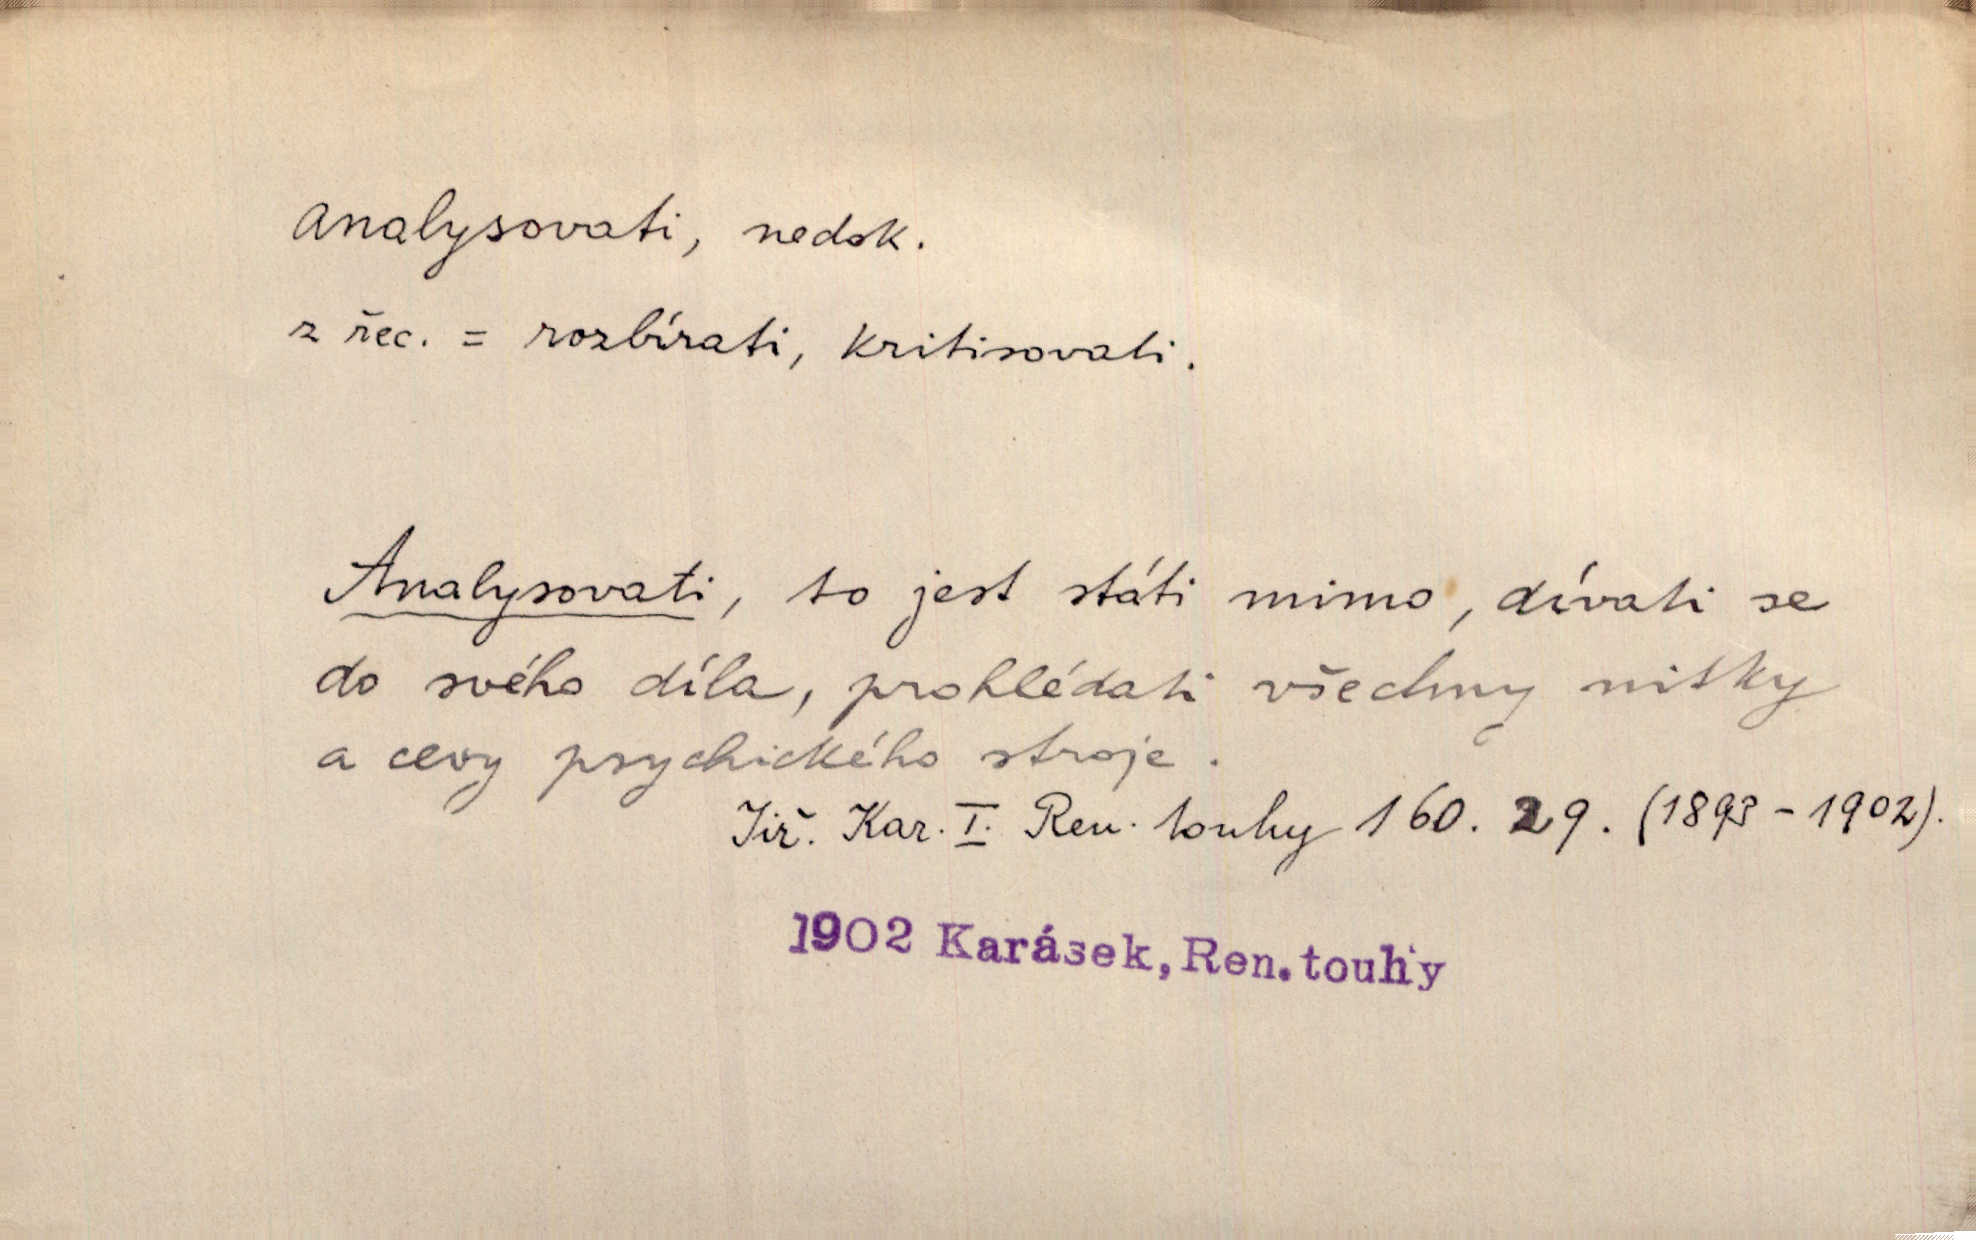 analysovati, nedok.
z řec. = rozbírati, kritisovati.
Analysovati, to jest státi mimo, dívati se
do svého díla, prohlédati všechny nitky
a cevy psychického stroje.
Jiř. Kar. I. Ren. touhy 160. 29. (1893 - 1902).
1902 Karásek, Ren. touhy